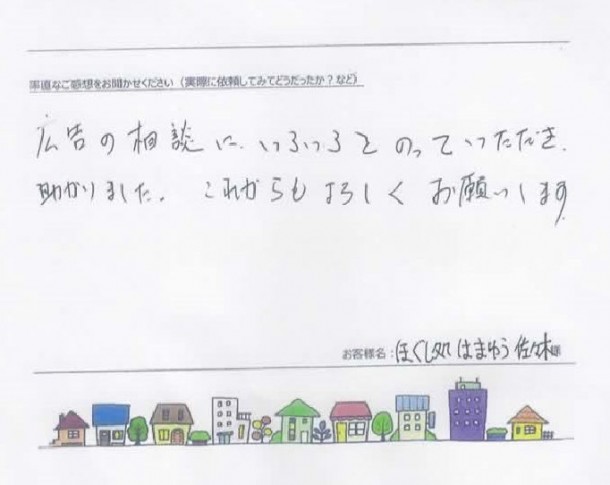 率直なご感想をお聞かせください（実際に依頼してみてどうだったか？など）
広告の相談に、いろいろとのっていただき、
助かりました。これからもよろしくお願いします
お客様名：ほぐし処 はまゆう 佐々木様